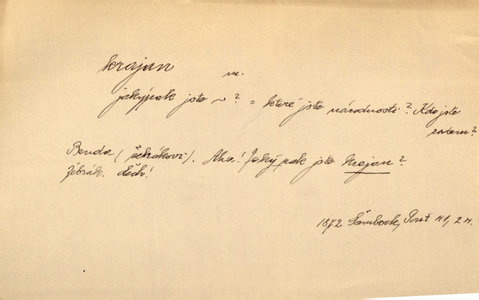 krajan m.
jakýpak jste ~? = které jste národnosti? Kdo jste
rodem?
Benda (žebrákovi). Aha! Jaký pak jste krajan?
Žebrák. Čech!
1872 Šamberk, 41, 24.